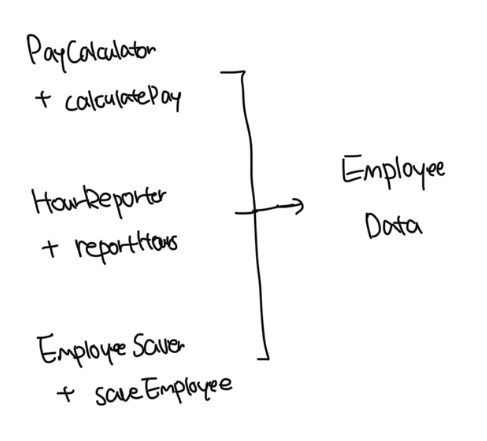 PayCalculator
+ calculatePay
HourReporter
+ reportHours
Employee Saver
+ saveEmployee
Employee
Data